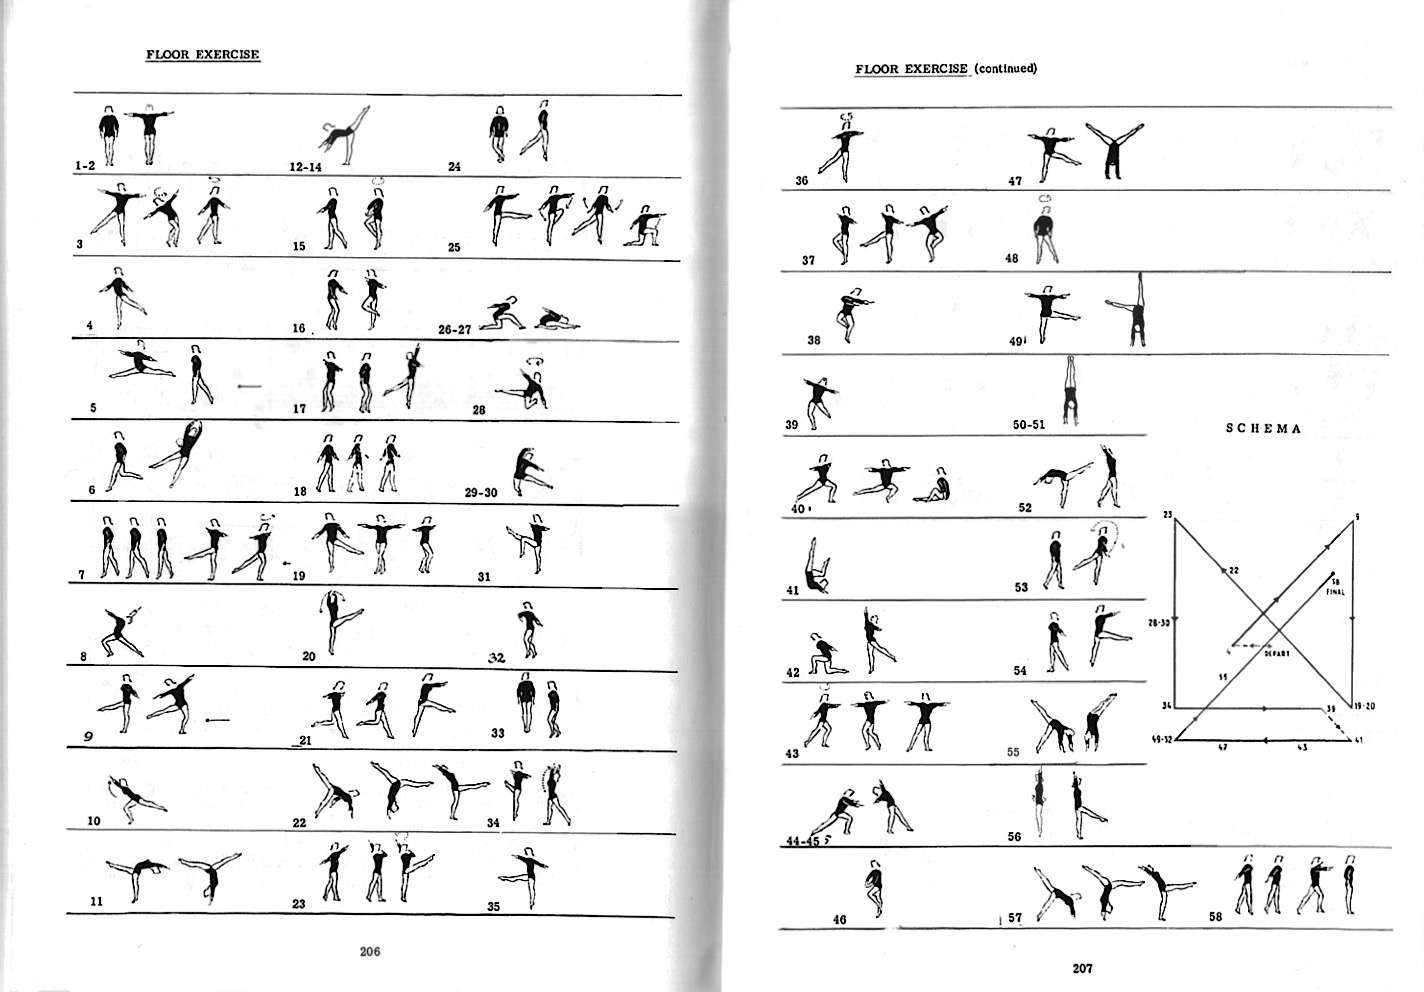 FLOOR EXERCISE
1-2
12-14
24
3
15
25
4
16
26-27
5
17
28
6
18
29-30
7
19
31
8
20
32
9
21
33
10
22
34
11
23
35
206
FLOOR EXERCISE (continued)
36
47
37
48
38
49
39
50-51
40
52
41
53
42
54
43
55
44-45
56
46
57
58
SCHEMA
23
22
58
FINAL
28-30
DEPART
55
34
39
19-20
49-52
47
43
41
207